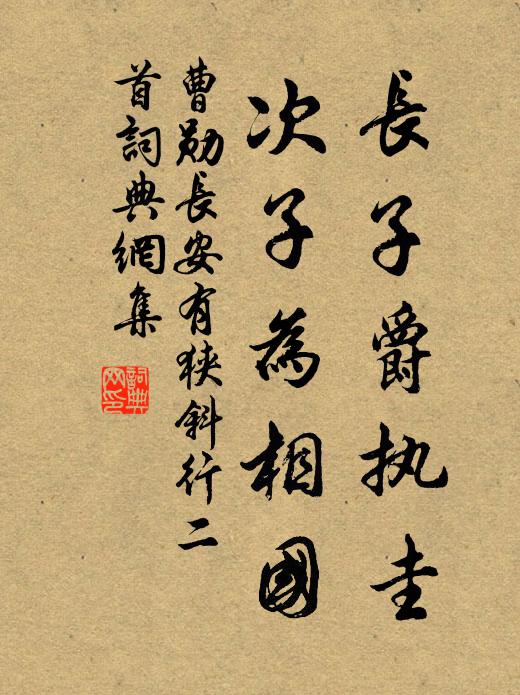 長子爵执圭
次子為相國
曹勋長安有狹斜行二
首詞典網集
詞典
网印